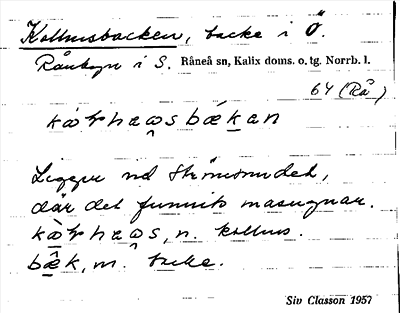 Kolhusbacken, backe i Ö.
Rånbyn i S. Råneå sn, Kalix doms. o. tg. Norrb. l.
64 (Rå)
Ligger vid Strömsundet,
där det funnits masugnar.
n. kolhus.
bâk, m. backe.
Siv Classon 1957